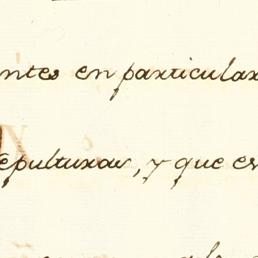 ntes en particular
epulturas, y que es